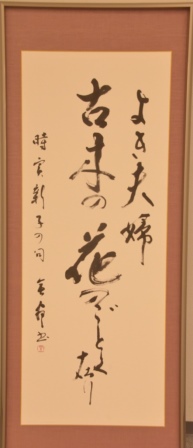 よき夫婦
古木の花のごとく在り
時実新子の句 書